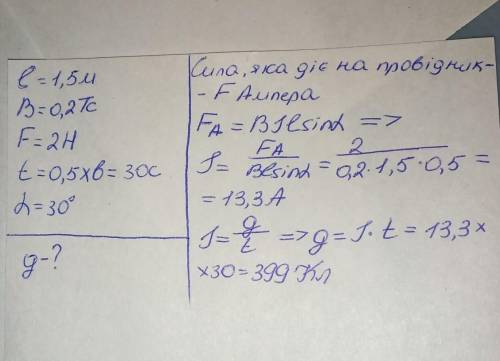 l = 1,5м
B = 0,2Тс
F = 2Н
t = 0,5хв = 30с
α = 30°
g - ?
Сила, яка діє на провідник-
- F Ампера
Fₐ = BIlsinα =>
I = Fₐ/Blsinα = 2/0,2·1,5·0,5 =
= 13,3 A
I = g/t => g = I·t = 13,3×
×30 = 399 Кл